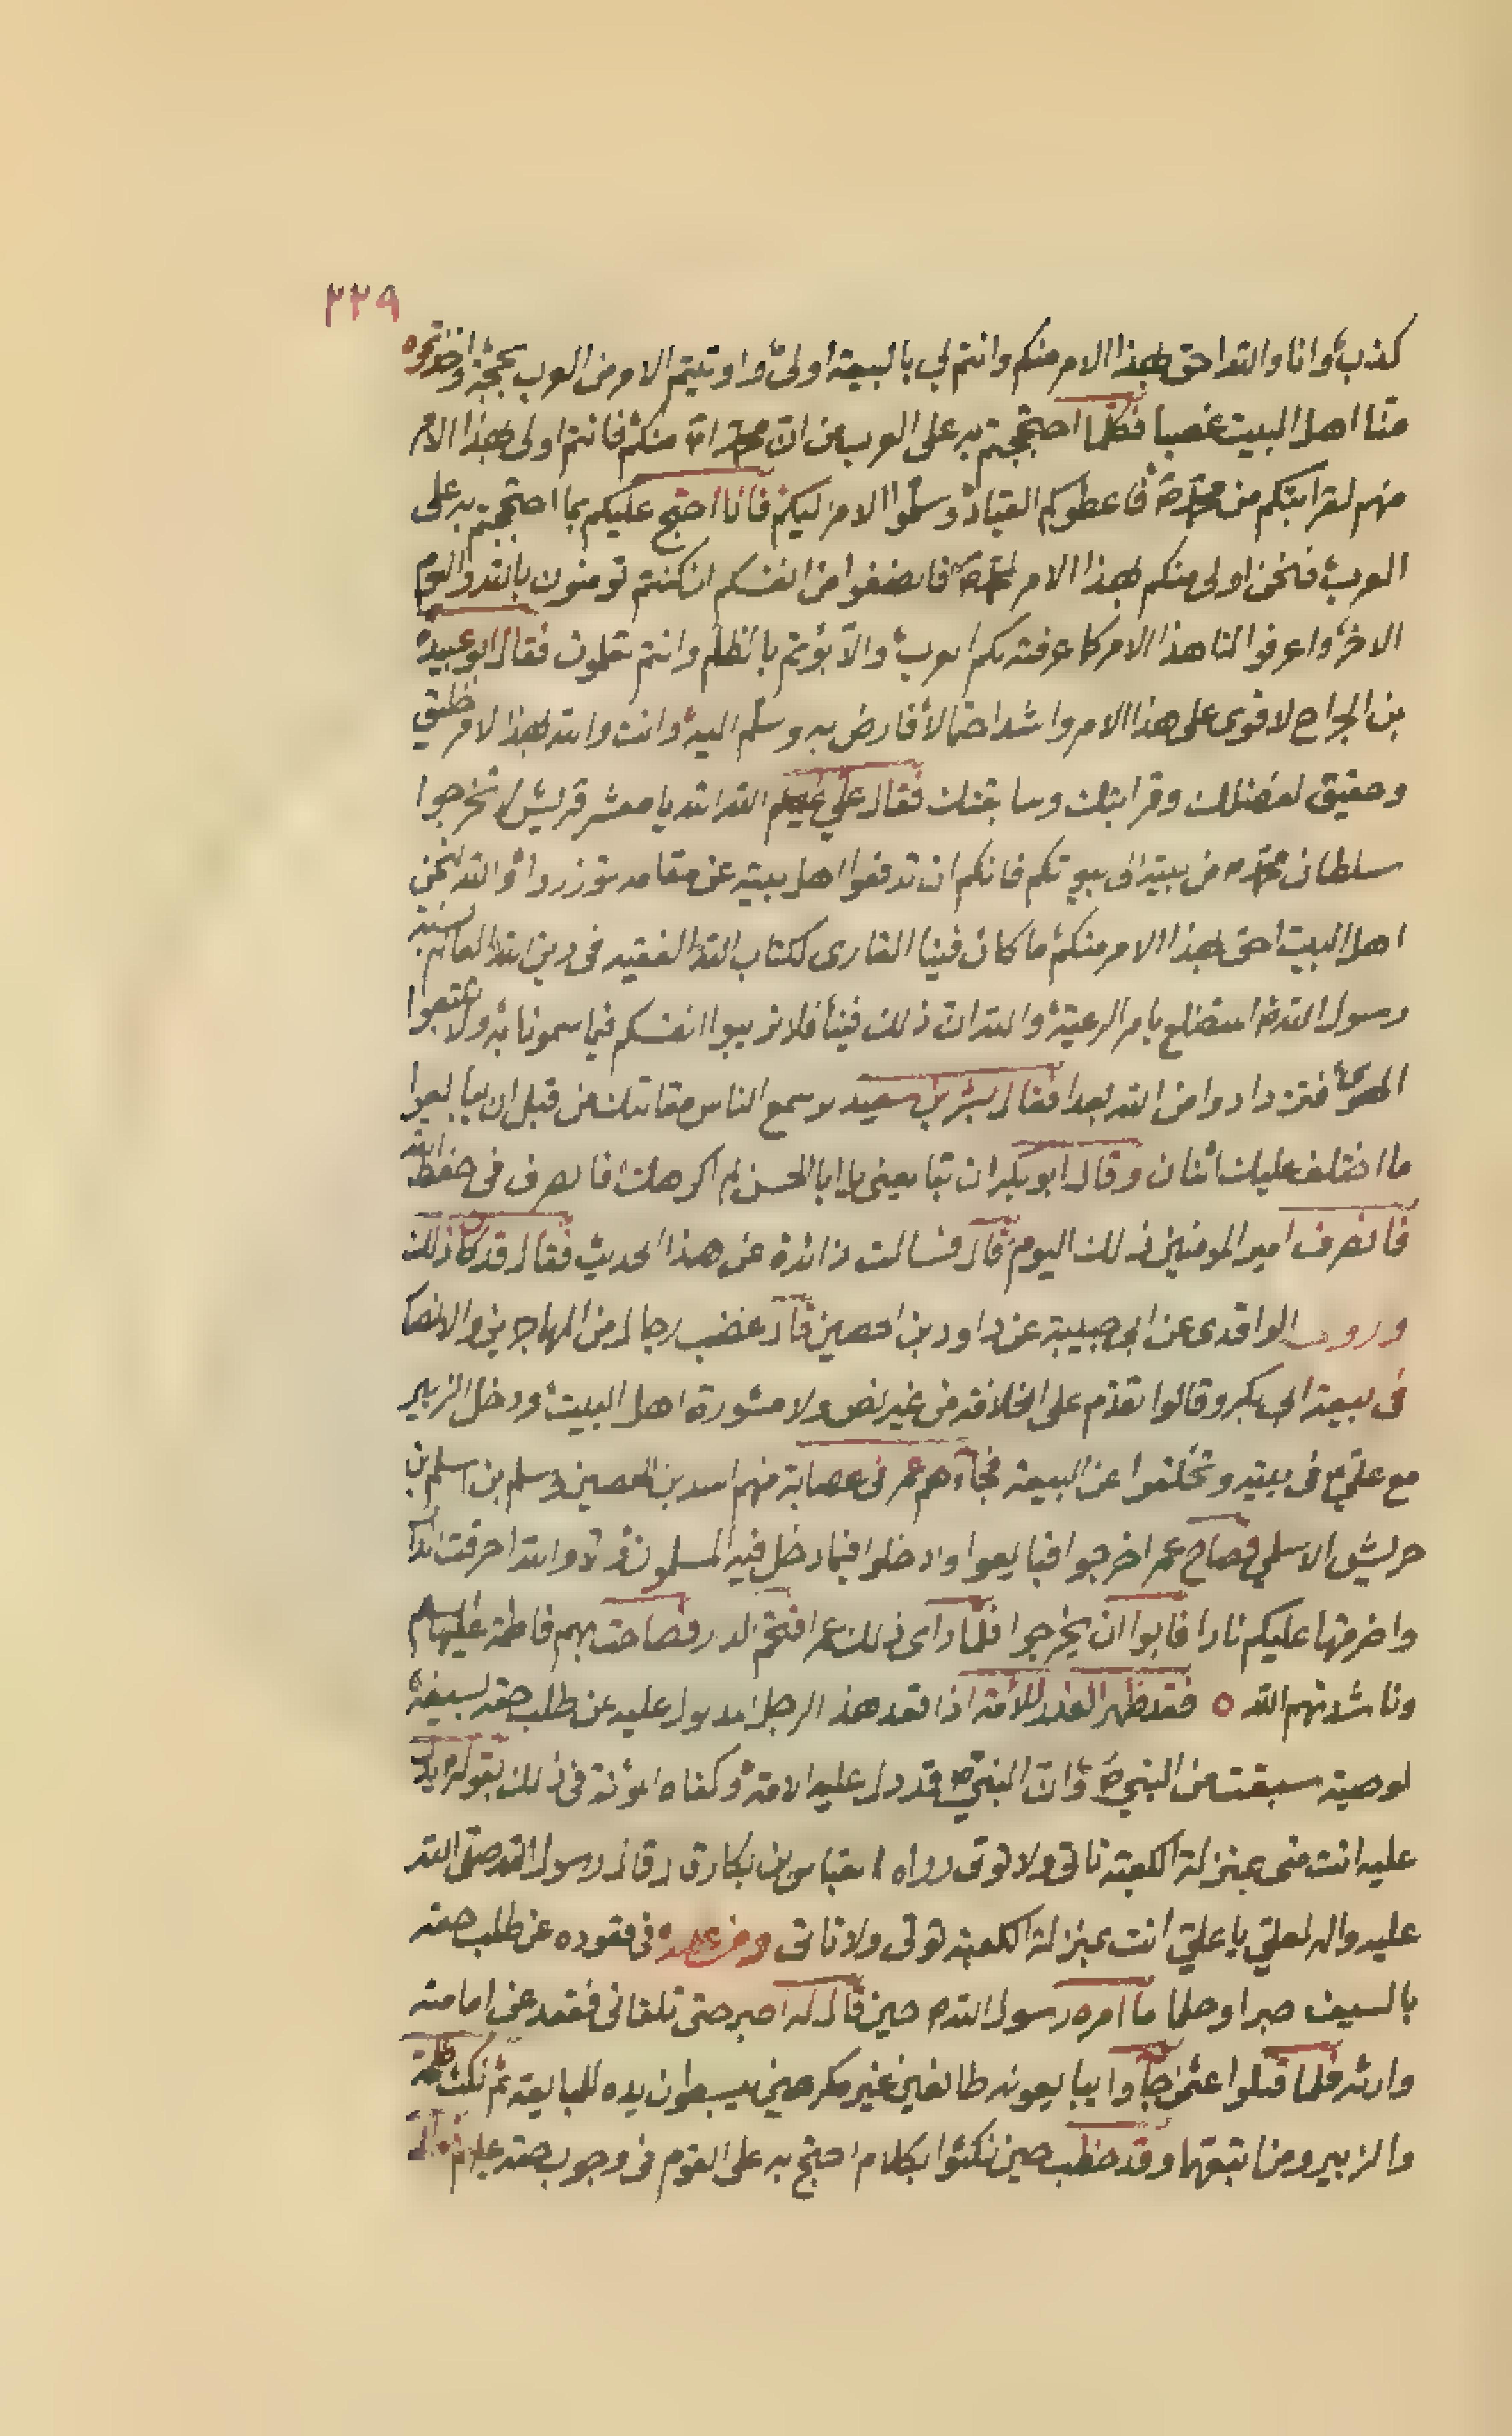 ٢٢٩
كذب وانا والله احق بهذا الامر منكم وانتم لي بالبيعة اولى واوتيتم الامر من العرب بحجة واخذتموه
منّا اهل البيت غصبا فكلما احتججتم به على العرب من ان محمدا منكم فانتم اولى بهذا الامر
منهم لقرابتكم من محمد ص فاعطوكم القيادة وسلموا الامر ليكم فانا احتج عليكم بما احتججتم به على
العرب فنحن اولى منكم بهذا الامر فانصفوا من انفسكم ان كنتم تومنون بالله واليوم
الاخر واعرفوا لنا هذا الامر كما عرفته لكم العرب والا بؤتم بالظلم وانتم تعلمون فقال ابو عبيدة
بن الجراح لاقوى على هذا الامر واشد احتمالا فارض به وسلم اليه وانت والله لهذا لامر خليق
وحقيق لفضلك وقرابتك وسابقتك فقال علي عليه السلم الله الله يا معشر قريش لا تخرجوا
سلطان محمد ص من بيته الى بيوتكم فانكم ان تدفعوا اهل بيته عن مقامه توزروا والله لنحن
اهل البيت احق بهذا الامر منكم ما كان فينا القارى لكتاب الله الفقيه في دين الله العالم بسنة
رسول الله ص المتضلع بامر الرعية والله ان ذلك فينا فلا تزيبوا انفسكم فيما سمونا به ولا تتبعوا
الهوى فتزدادوا من الله بعدا فقال بشر بن سعيد لو سمع الناس مقالتك من قبل ان يبايعوا
ما اختلف عليك اثنان وقال ابو بكر ان تبايعنى يا ابا الحسن لم اكرهك فانصرف في حفظ الله
فانصرف امير المومنين ذلك اليوم قال فسالت زائدة عن هذا الحديث فقال قد كان ذلك
وروى الواقدى عن ابى حبيبة عن داود بن الحصين قال غضب رجال من المهاجرين والانصا
في بيعة ابى بكر وقالوا تقدم على الخلافة من غير نص ولا مشورة اهل البيت ودخل الزبير
مع علي ع في بيته وتخلفوا عن البيعة فجاءهم عمر في عصابة منهم اسد بن الحصين وسلم بن اسلم بن
حريش الاسلمي فصاح عمر اخرجوا فبايعوا وادخلوا فيما دخل فيه المسلمون والا والله احرقت الدار
واضرمتها عليكم نارا فابوا ان يخرجوا فلما راى ذلك عمر اقتحم الدار فصاحت بهم فاطمة عليها السلم
وناشدتهم الله ٥ فقد ظهر العذر للامة اذا قعد هذا الرجل المدلول عليه عن طلب حقه بسيفه
لوصية سبقت من النبي ص وان النبي ص قد دل عليه الامة وكفاه المؤنة في ذلك بقوله
عليه انت منى بمنزلة الكعبة تاتى ولا توتى رواه العباس بن بكار قال قال رسول الله صلى الله
عليه واله لعلي يا علي انت بمنزلة الكعبة توتى ولا تاتى ومن عهده في قعوده عن طلب حقه
بالسيف صبرا وحلما ما امره رسول الله ص حين قال له اصبر حتى تلقانى فقعد عن امامته
وارثه فلما قتلوا عثمن جاوا يبايعونه طائفين غير مكرهين يبسطون يده للمبايعة ثم نكث طلحة
والزبير ومن تبعهما وقد خطب حين نكثوا بكلام احتج به على القوم في وجوب حقه عليهم